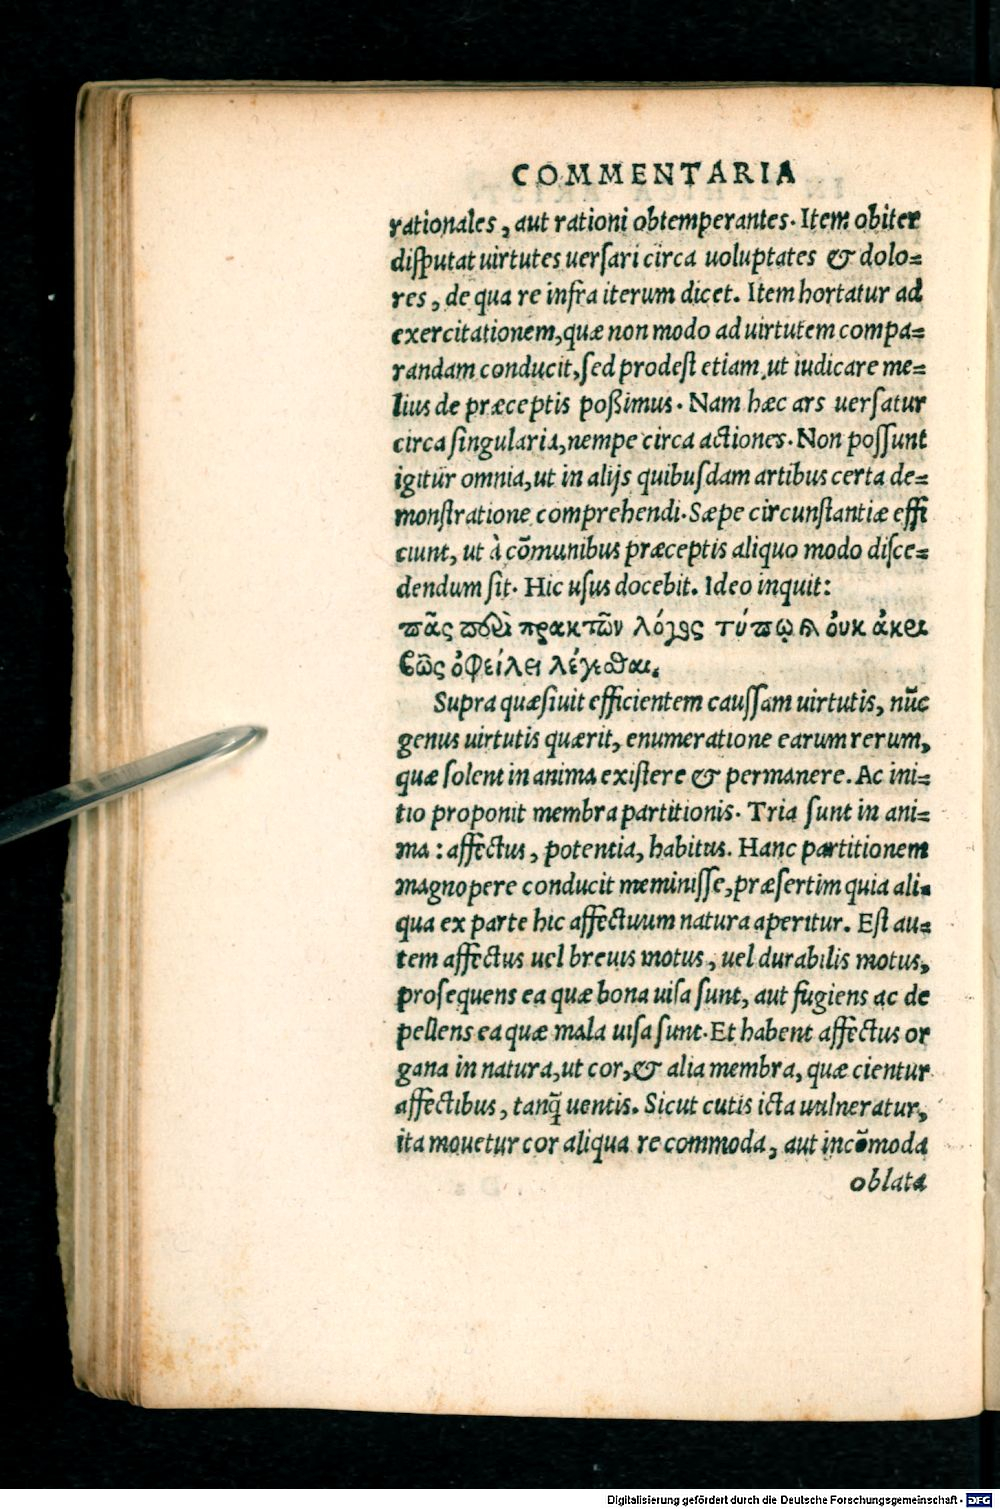 COMMENTARIA
rationales, aut rationi obtemperantes. Item obiter
disputat uirtutes uersari circa uoluptates & dolo=
res, de qua re infra iterum dicet. Item hortatur ad
exercitationem, quæ non modo ad uirtutem compa=
randam conducit, sed prodest etiam, ut iudicare me=
lius de præceptis poßimus. Nam hæc ars uersatur
circa singularia, nempe circa actiones. Non possunt
igitur omnia, ut in alijs quibusdam artibus certa de=
monstratione comprehendi. Sæpe circunstantiæ effi
ciunt, ut à cõmunibus præceptis aliquo modo disce=
dendum sit. Hic usus docebit. Ideo inquit:
πᾶς περὶ πρακτῶν λόγος τύπῳ καὶ ὀυκ ἀκρι
βῶς ὀφείλει λέγεσθαι.
Supra quæsiuit efficientem caussam uirtutis, nũc
genus uirtutis quærit, enumeratione earum rerum,
quæ solent in anima existere & permanere. Ac ini=
tio proponit membra partitionis. Tria sunt in ani=
ma: affectus, potentia, habitus. Hanc partitionem
magnopere conducit meminisse, præsertim quia ali=
qua ex parte hic affectuum natura aperitur. Est au=
tem affectus uel breuis motus, uel durabilis motus,
prosequens ea quæ bona uisa sunt, aut fugiens ac de
pellens ea quæ mala uisa sunt. Et habent affectus or
gana in natura, ut cor, & alia membra, quæ cientur
affectibus, tanq̃ uentis. Sicut cutis icta uulneratur,
ita mouetur cor aliqua re commoda, aut incõmoda
oblata
Digitalisierung gefördert durch die Deutsche Forschungsgemeinschaft - DFG